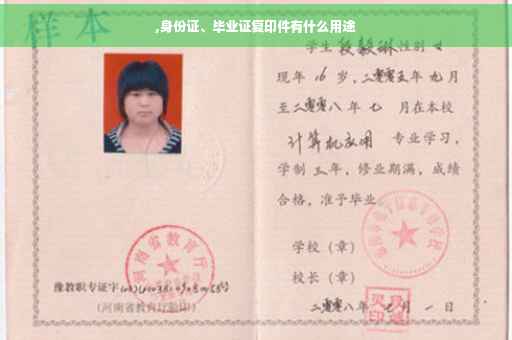 ,身份证、毕业证复印件有什么用途
样本
学生 段毅琳 性别 女
现年 16 岁，二零零五年 九 月
至二零零八年 七 月在本校
计算机应用 专业学习，
学制 三 年，修业期满，成绩
合格，准予毕业
学校（章）
校长（章）
二零零八年 七 月 一 日
河南省教育厅
豫教职专证字
（河南省教育厅验印）